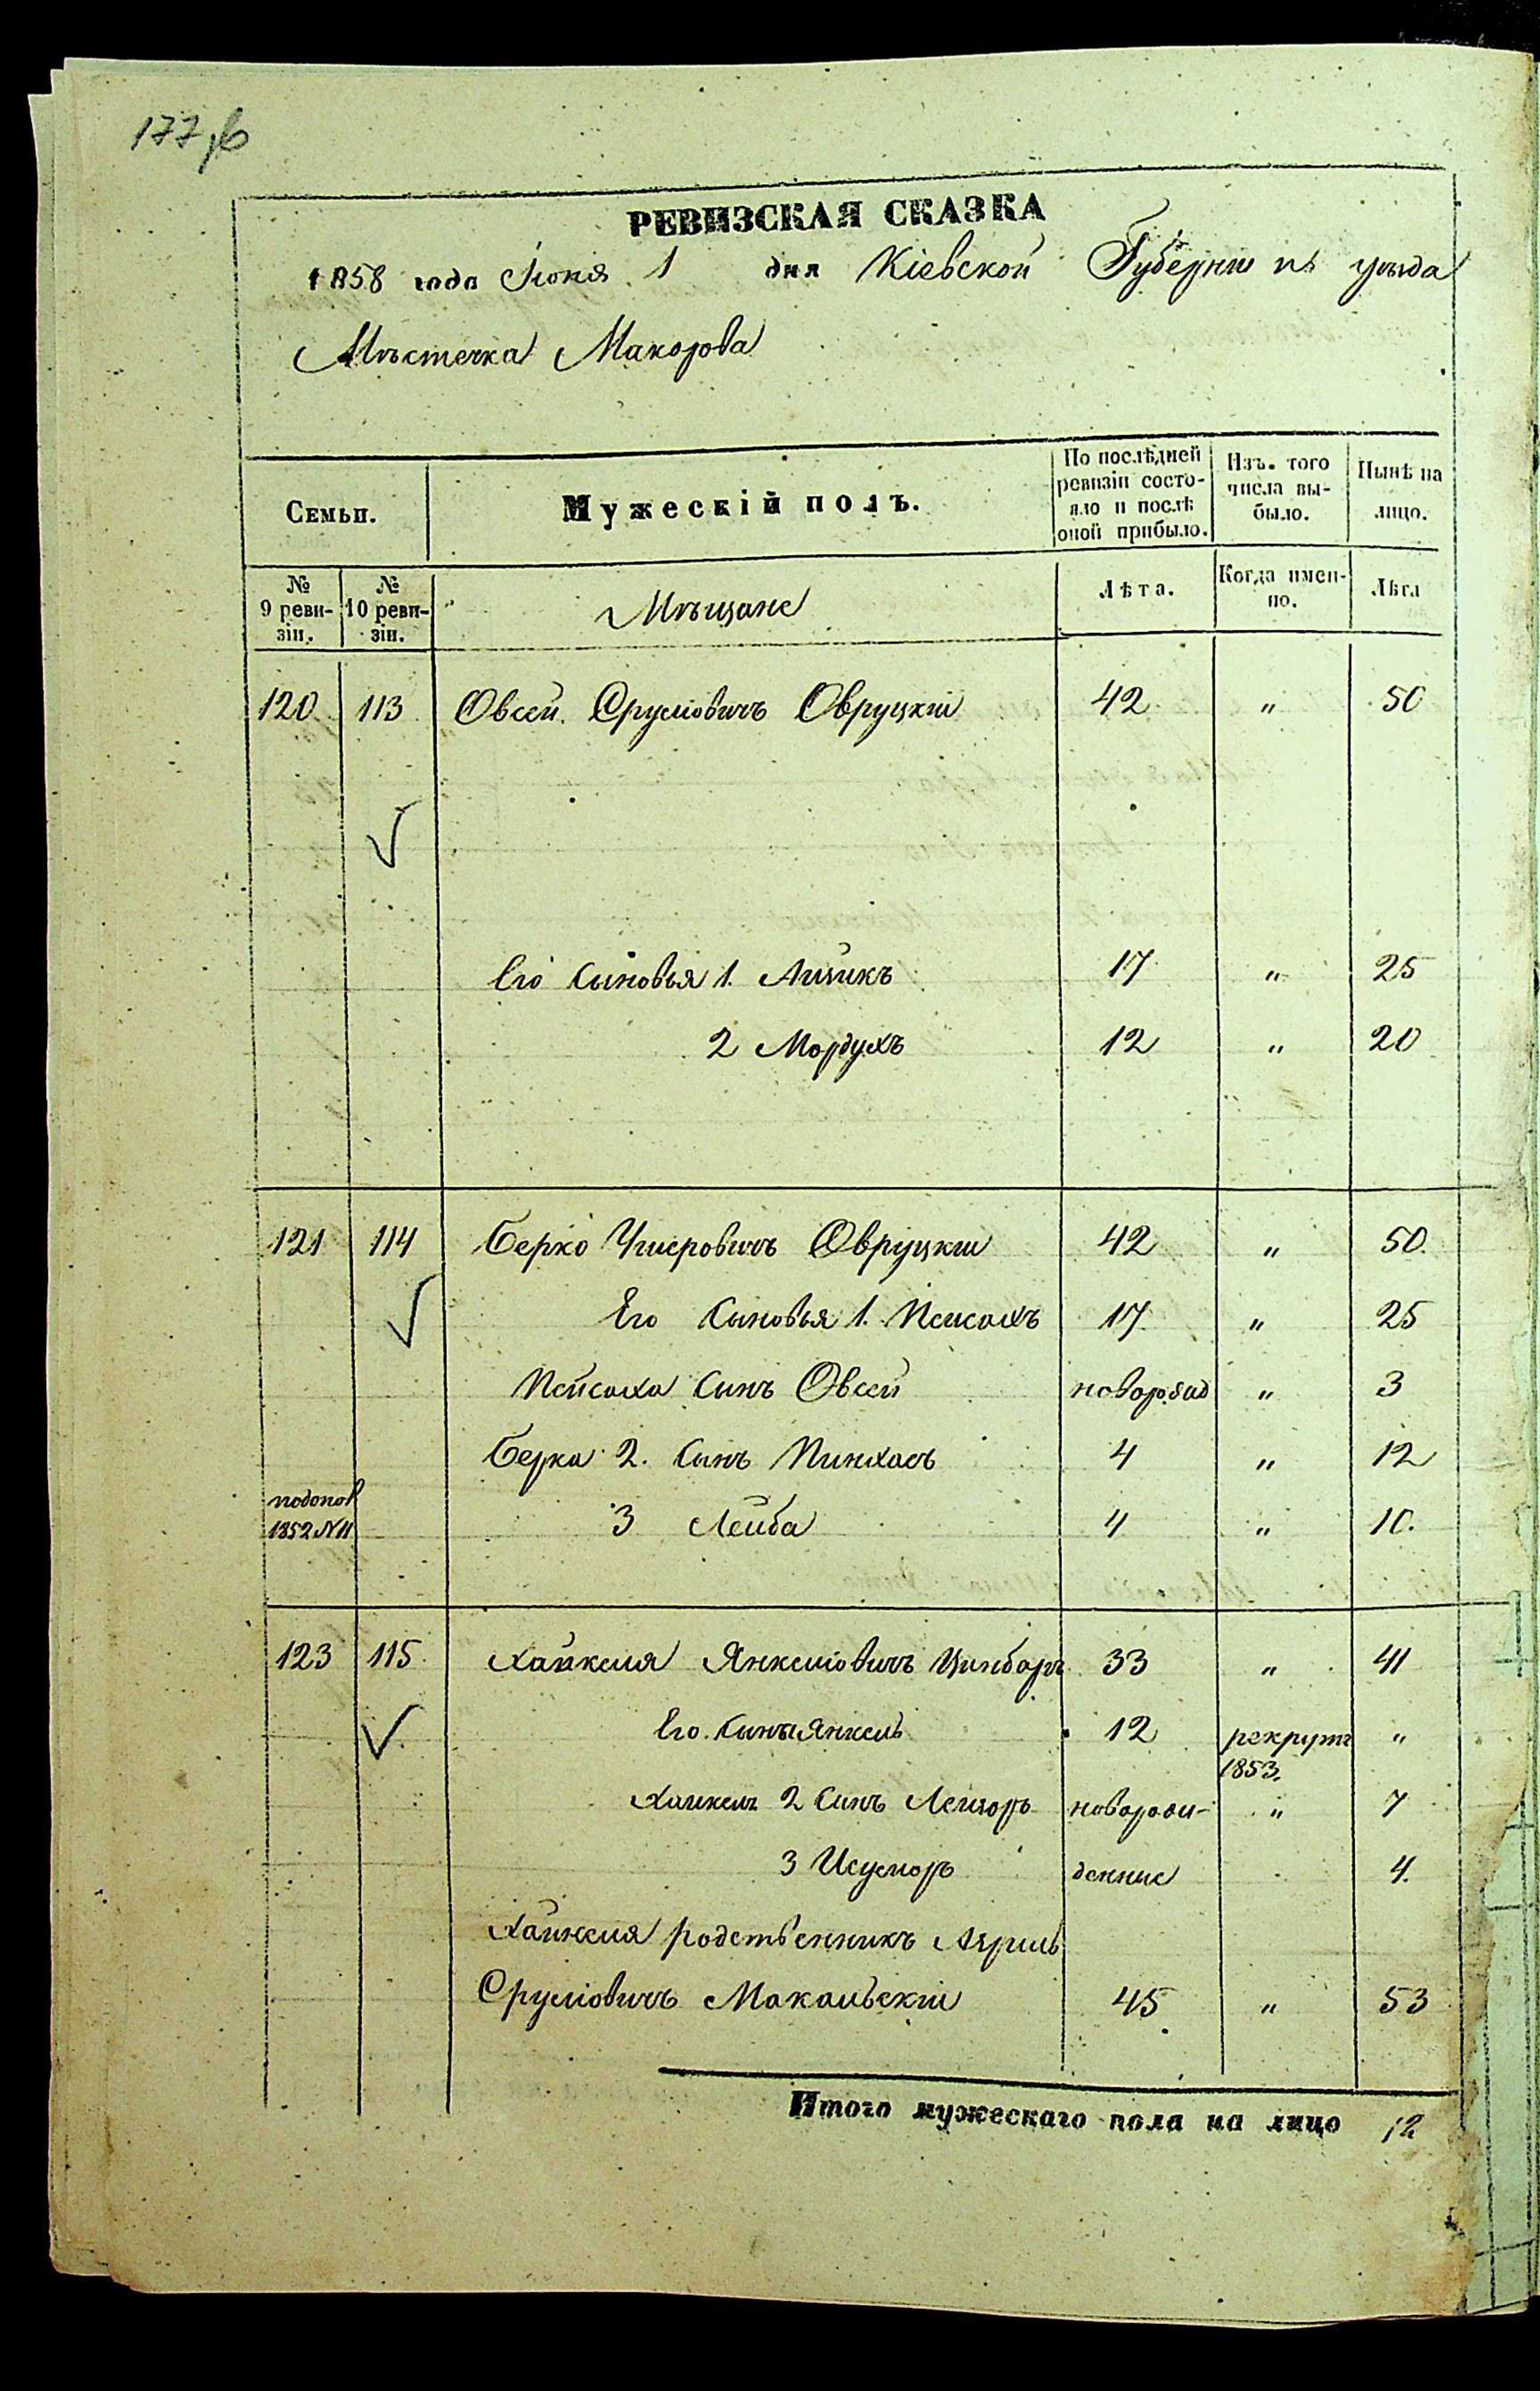 177 
РЕВИЗСКАЯ СКАЗКА
1858 года Июня 1 дня Кіевской Губерніи и уѣзда
Мѣстечка Макарова
Семьи.
Мужескій полъ.
По послѣдней ревизіи состояло и послѣ оной прибыло.
Изъ того числа выбыло.
Нынѣ на лицо.
№ 9 ревизіи.
№ 10 ревизіи.
Мѣщане
Лѣта.
Когда именно.
Лѣта
120 113 Овсей Сруліовичъ Овруцкій 42 " 50
Его Сыновья 1. Айзикъ 17 " 25
2 Мордухъ 12 " 20
121 114 Берко Овруцкій 42 " 50
Его Сыновья 1. Пейсахъ 17 " 25
Пейсаха Сынъ Овсей " 3
Берка 2. Сынъ Пинхасъ 4 " 12
1852 N 11 3 Лейба 4 " 10.
123 115 Хайкеля Янкеліовичъ 33 " 41
Его Сынъ Янкель 12 рекрутъ 1853. "
Хайкеля 2 Сынъ Лейзоръ новорожи- " 7
3 денние 4.
Хайкеля родственникъ
Сруліовичъ 45 " 53
Итого мужескаго пола на лицо 12